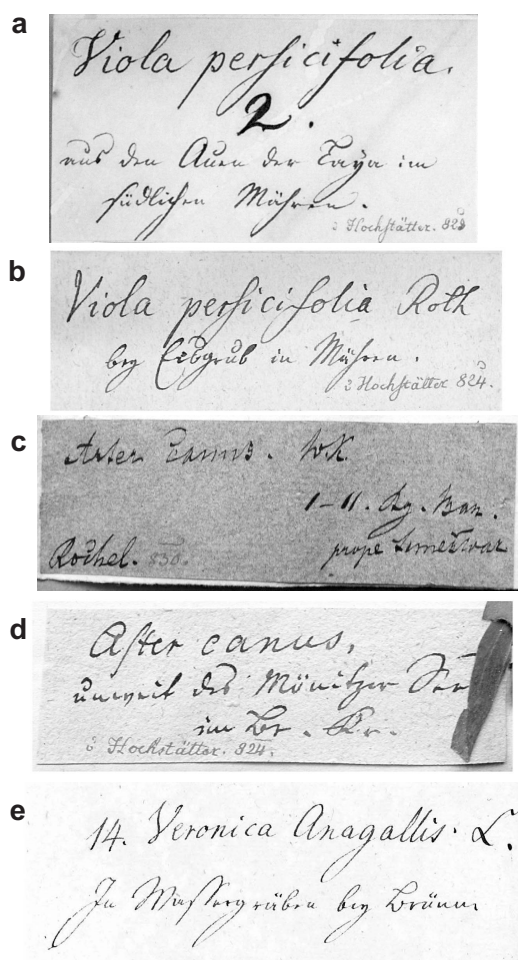 a
Viola persicifolia.
2.
aus den Auen der Taya im
südlichen Mähren.
Hochstätter. 823
b
Viola persicifolia Roth
bey Eisgrub in Mähren.
Hochstätter 824.
c
Aster canus. WK.
1-11. Rg. Ban.
Rochel. 830. prope Temesvar
d
Aster canus,
unweit des Mönitzer See
im Br. Kr.
Hochstätter. 824.
e
14. Veronica Anagallis. L.
In Wassergräben bey Brünn